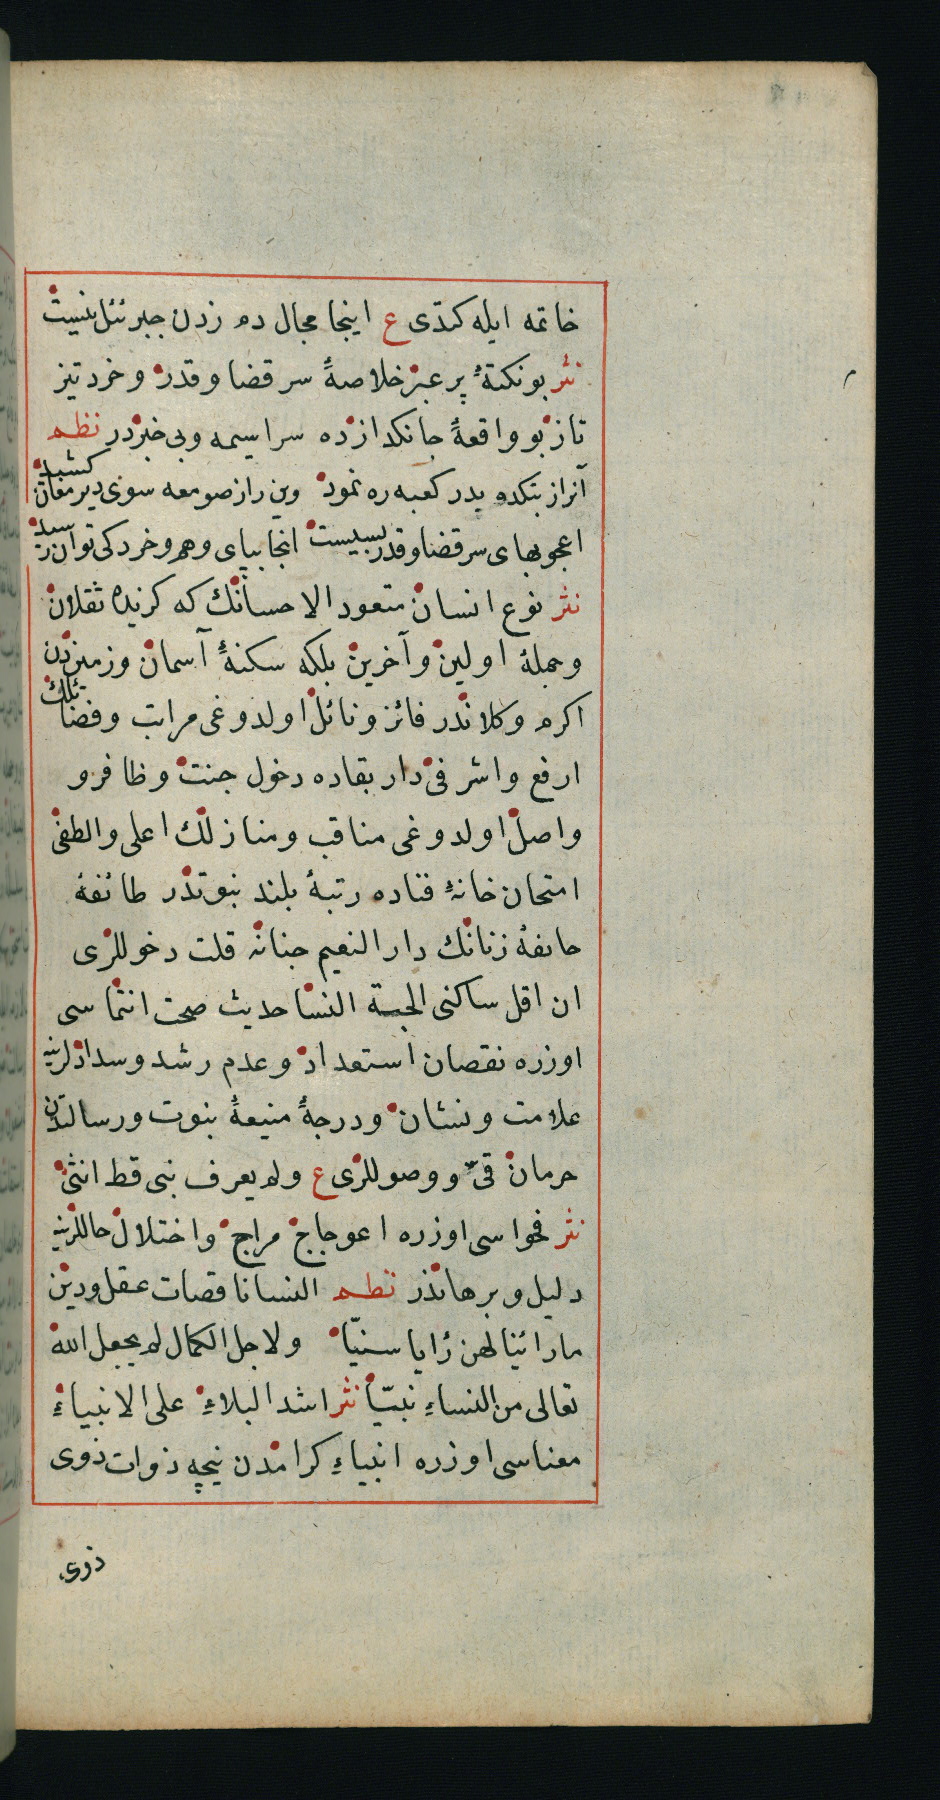 خاتمه ایله کتدی ع اینجا مجال دم زدن جبرئیل نیست
نثر بو نکتۀ پر عبر خلاصۀ سر قضا و قدر و خرد تیز
تاز بو واقعۀ جانکدازده سراسیمه و بی خبردر نظم
آنرا ز بتکده بدر کعبه ره نمود وین را ز صومعه سوی دیر مغان کشید
اعجوبهای سر قضا و قدر بسیست انجا بپای وهم و خرد کی توان رسید
نثر نوع انسان متعود الاحسانك که کزیدۀ ثقلان
و جملۀ اولین و آخرین بلکه سکنۀ آسمان و زمیندن
اکرم و کلاندر فائز و نائل اولدوغی مراتب و فضائلك
ارفع و اشرفی دار بقاده دخول جنت و ظافر و
واصل اولدوغی مناقب و منازلك اعلی و الطفی
امتحان خانۀ فناده رتبۀ بلند نبوتدر طائفۀ
حائفۀ زنانك دار النعیم جنانه قلت دخوللری
ان اقل ساکنی الجنة النسا حدیث صحت انتماسی
اوزره نقصان استعداد و عدم رشد و سدادلرینه
علامت و نشان و درجۀ منیعۀ نبوت و رسالتدن
حرمان قی و وصوللری ع ولم یعرف نبی قط انثی
نثر فحواسی اوزره اعوجاج مراج و اختلال حاللرینه
دلیل و برهاندر نظم النسا ناقصات عقل و دین
ما رائینا لهن رٔایا سنیّا ولاجل الکمال لم یجعل الله
تعالی من النساء نبیّا نثر اشد البلاء علی الانبیاء
معناسی اوزره انبیاء کرامدن نیچه ذوات ذوی
ذوی